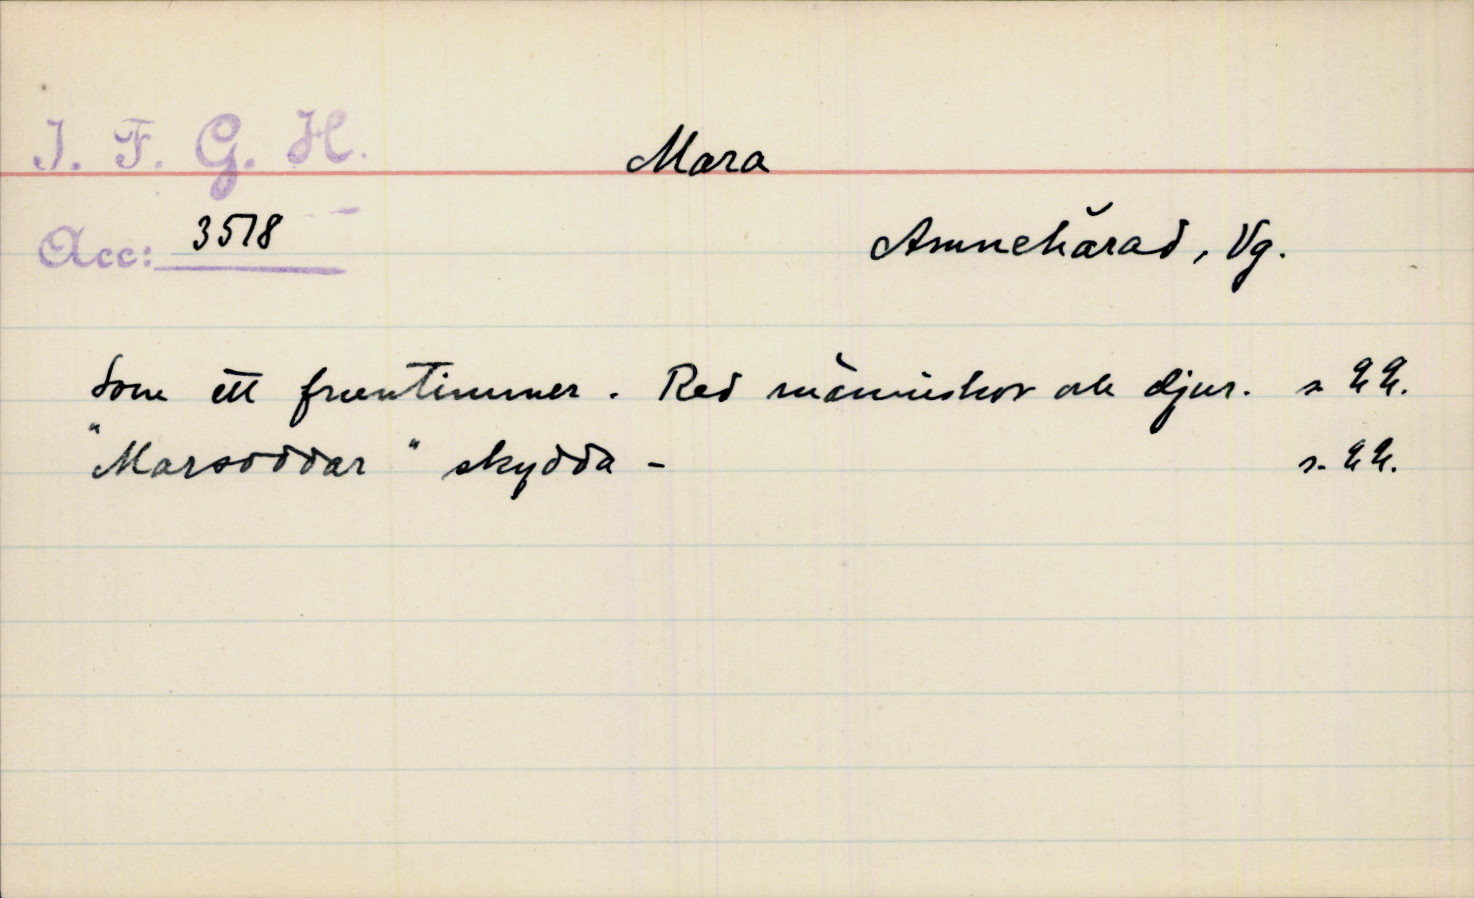 I. F. G. H.
Mara
Acc: 3518
Amnehärad, Vg.
Som ett fruentimmer. Red människor och djur. s. 22.
"Marsoddar" skydda - s. 22.